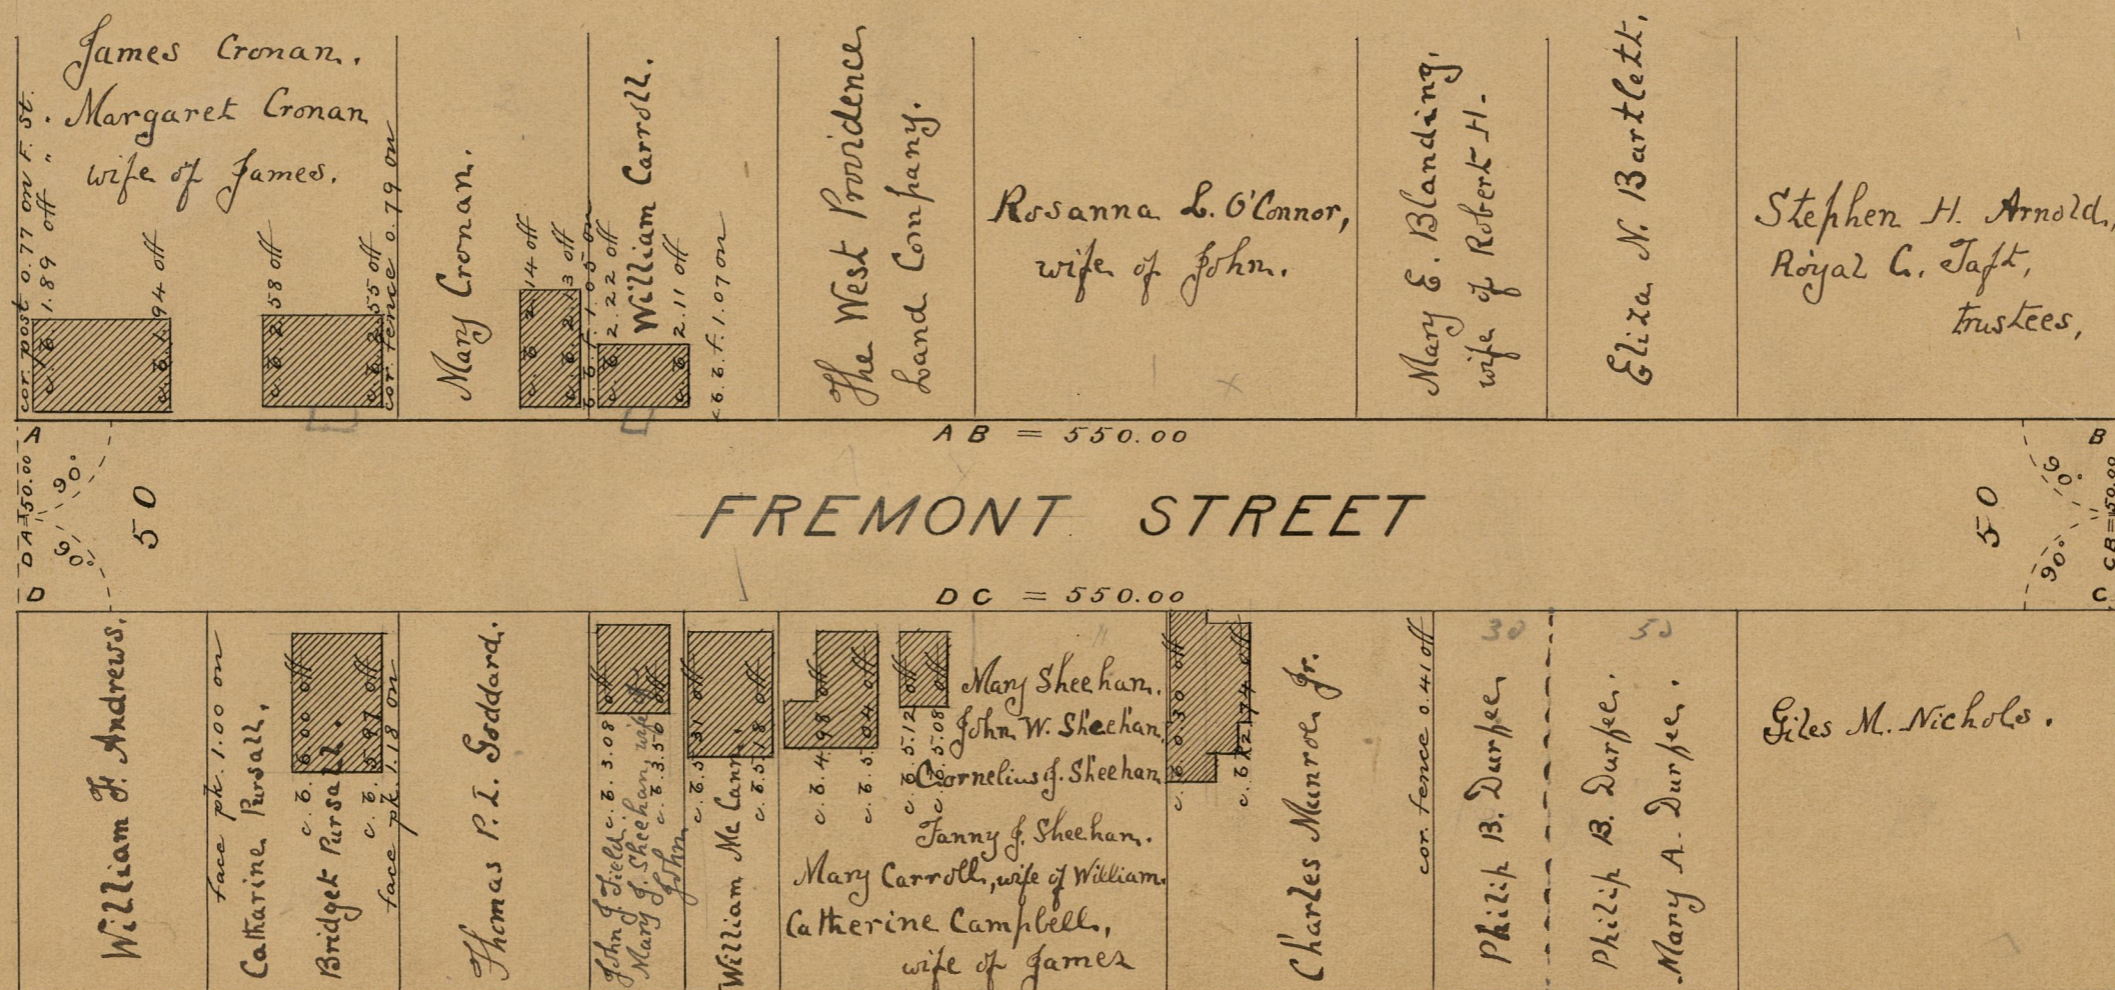 James Cronan.
Margaret Cronan
wife of James.
cor. post 0.77 on F. St.
c.b. 1.89 off "
c.b. 1.94 off
c.b. 2.58 off
c.b. 2.55 off
cor. fence 0.79 on
Mary Cronan.
c.b. 2.14 off
c.b. 2.13 off
c.b.f. 1.05 on
c.b. 2.22 off
William Carroll.
c.b. 2.11 off
c.b.f. 1.07 on
The West Providence
Land Company.
Rosanna L. O'Connor,
wife of John.
Mary E. Blanding,
wife of Robert H.
Eliza N. Bartlett.
Stephen H. Arnold,
Royal C. Taft,
trustees,
A
AB = 550.00
B
DA=50.00
90°
90°
50
FREMONT STREET
50
90°
90°
CB=50.00
D
DC = 550.00
C
William F. Andrews.
face pk. 1.00 on
Catharine Pursall,
Bridget Pursall.
c.b. 6.00 off
c.b. 5.97 off
face pk. 1.18 on
Thomas P. I. Goddard.
John J. Field.
c.b. 3.08 off
Mary J. Sheehan, wife of
John
c.b. 3.50 off
c.b. 5.31 off
William McCann.
c.b. 5.18 off
c.b. 4.98 off
c.b. 5.04 off
c.b. 5.12 off
c.b. 5.08 off
Mary Sheehan.
John W. Sheehan.
Cornelius J. Sheehan
Fanny J. Sheehan.
Mary Carroll, wife of William.
Catherine Campbell,
wife of James
c.b. 0.30 off
c.b. 2.74 off
Charles Munroe Jr.
cor. fence 0.41 off
30
Philip B. Durfee
50
Philip B. Durfee.
Mary A. Durfee.
Giles M. Nichols.